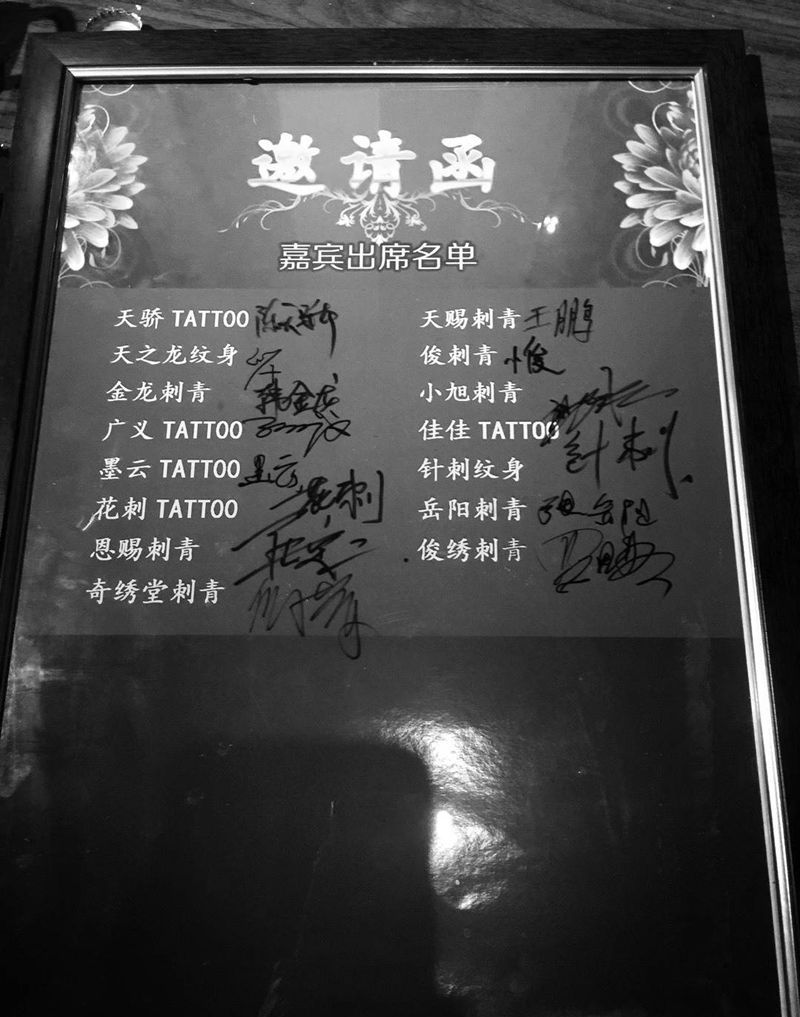 邀请函
嘉宾出席名单
天骄 TATTOO
天之龙纹身
金龙刺青 韩金龙
广义 TATTOO
墨云 TATTOO 墨云
花刺 TATTOO 花刺
恩赐刺青
奇绣堂刺青
天赐刺青 王鹏
俊刺青 小俊
小旭刺青
佳佳 TATTOO
针刺纹身 针刺
岳阳刺青
俊绣刺青